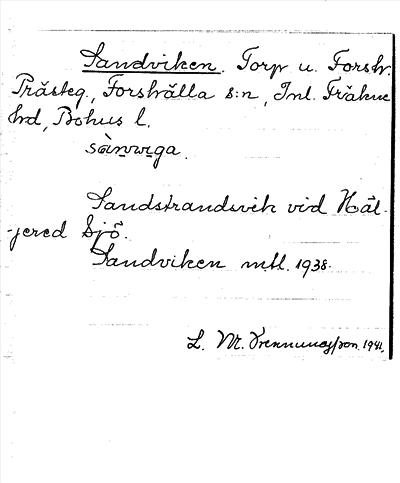 Sandviken. Torp u. Forsh.
Prästeg., Forshälla s:n, Inl. Fräkne
hrd, Bohus l.
sànvviga.
Sandstrandsvik vid Häl-
-jered Sjö.
Sandviken mtl. 1938.
L. M. 1941.